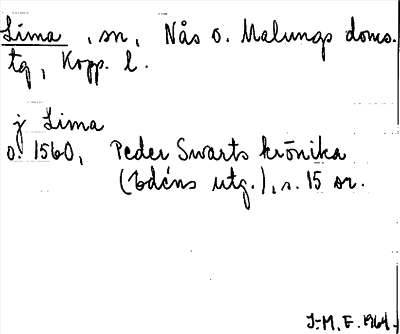 Lima, sn, Nås o. Malungs doms.
tg, Kopp. l.
j Lima
o. 1560, Peder Swarts krönika
(Edéns utg.), s. 15 or.
J-M. E. 1964.